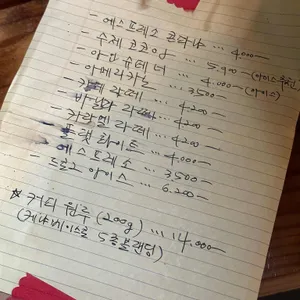 - 에스프레소 콘타나 ... 4.000-
- 수제 코코아 ... 5.400-(아이스
- 아인슈테너 ... 4.000-(아이스)
- 아메리카노 ... 3.500-
- 카페 라떼 ... 4.200-
- 바닐라 라떼 ... 4.200-
- 카라멜 라떼 ... 4.200-
- 플랫 화이트 ... 4.000-
- 에스프레소 ... 3.500-
- 드로그 아이스 ... 6.200-
* 커피 원두 (200g) ... 14.000-
(케냐베이스로 5종블랜딩)